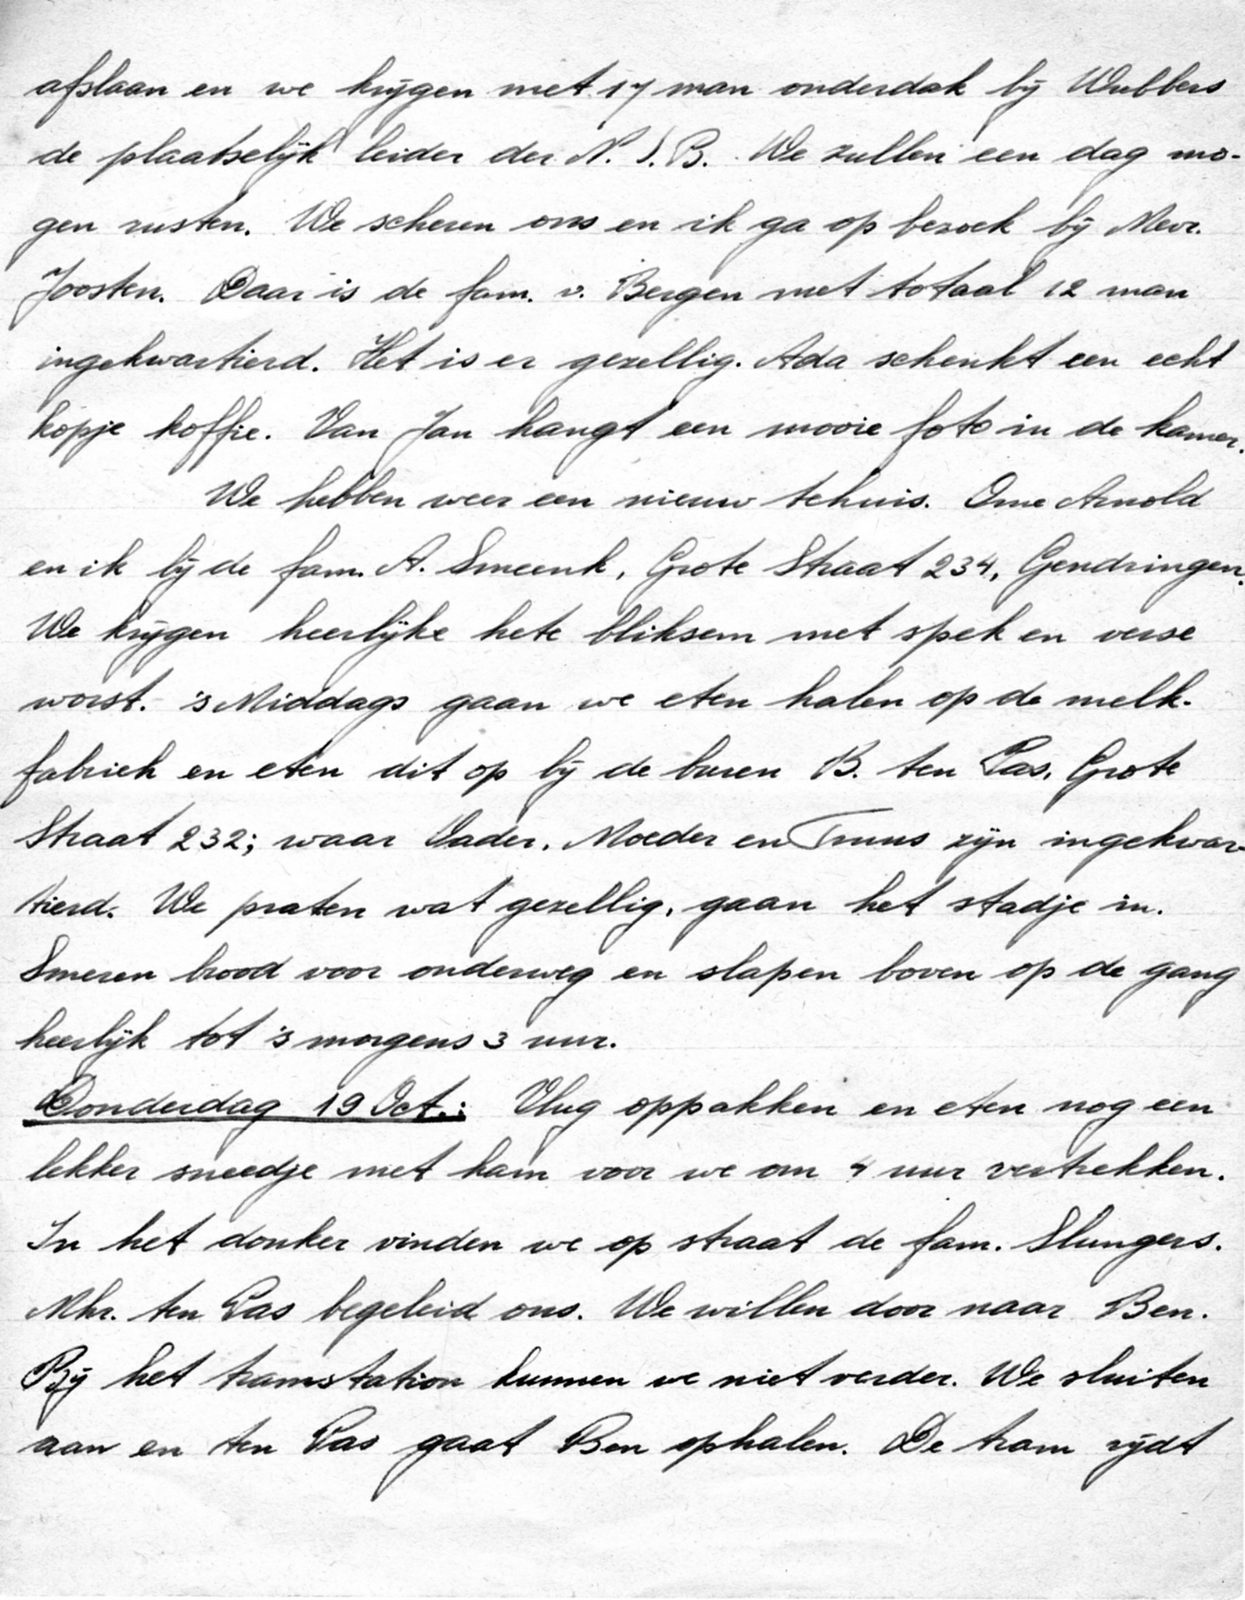 afslaan en we krijgen met 17 man onderdak bij Wubbers
de plaatselijk leider der N.S.B. We zullen een dag mo-
gen rusten. We scheren ons en ik ga op bezoek bij Mevr.
Joosten. Daar is de fam. v. Bergen met totaal 12 man
ingekwartierd. Het is er gezellig. Ada schenkt een echt
kopje koffie. Van Jan hangt een mooie foto in de kamer.
We hebben weer een nieuw tehuis. Ome Arnold
en ik bij de fam. A. Smeenk, Grote Straat 234, Gendringen.
We krijgen heerlijke hete bliksem met spek en verse
worst. 's Middags gaan we eten halen op de melk-
fabriek en eten dit op bij de buren B. ten Pas, Grote
Straat 232; waar Vader, Moeder en Truus zijn ingekwar
tierd. We praten wat gezellig, gaan het stadje in.
Smeren brood voor onderweg en slapen boven op de gang
heerlijk tot 's morgens 3 uur.
Donderdag 19 Oct.: Vlug oppakken en eten nog een
lekker sneedje met ham voor we om 4 uur vertrekken.
In het donker vinden we op straat de fam. Slungers.
Mhr. ten Pas begeleid ons. We willen door naar Ben.
Bij het tramstation kunnen we niet verder. We sluiten
aan en ten Pas gaat Ben ophalen. De tram rijdt